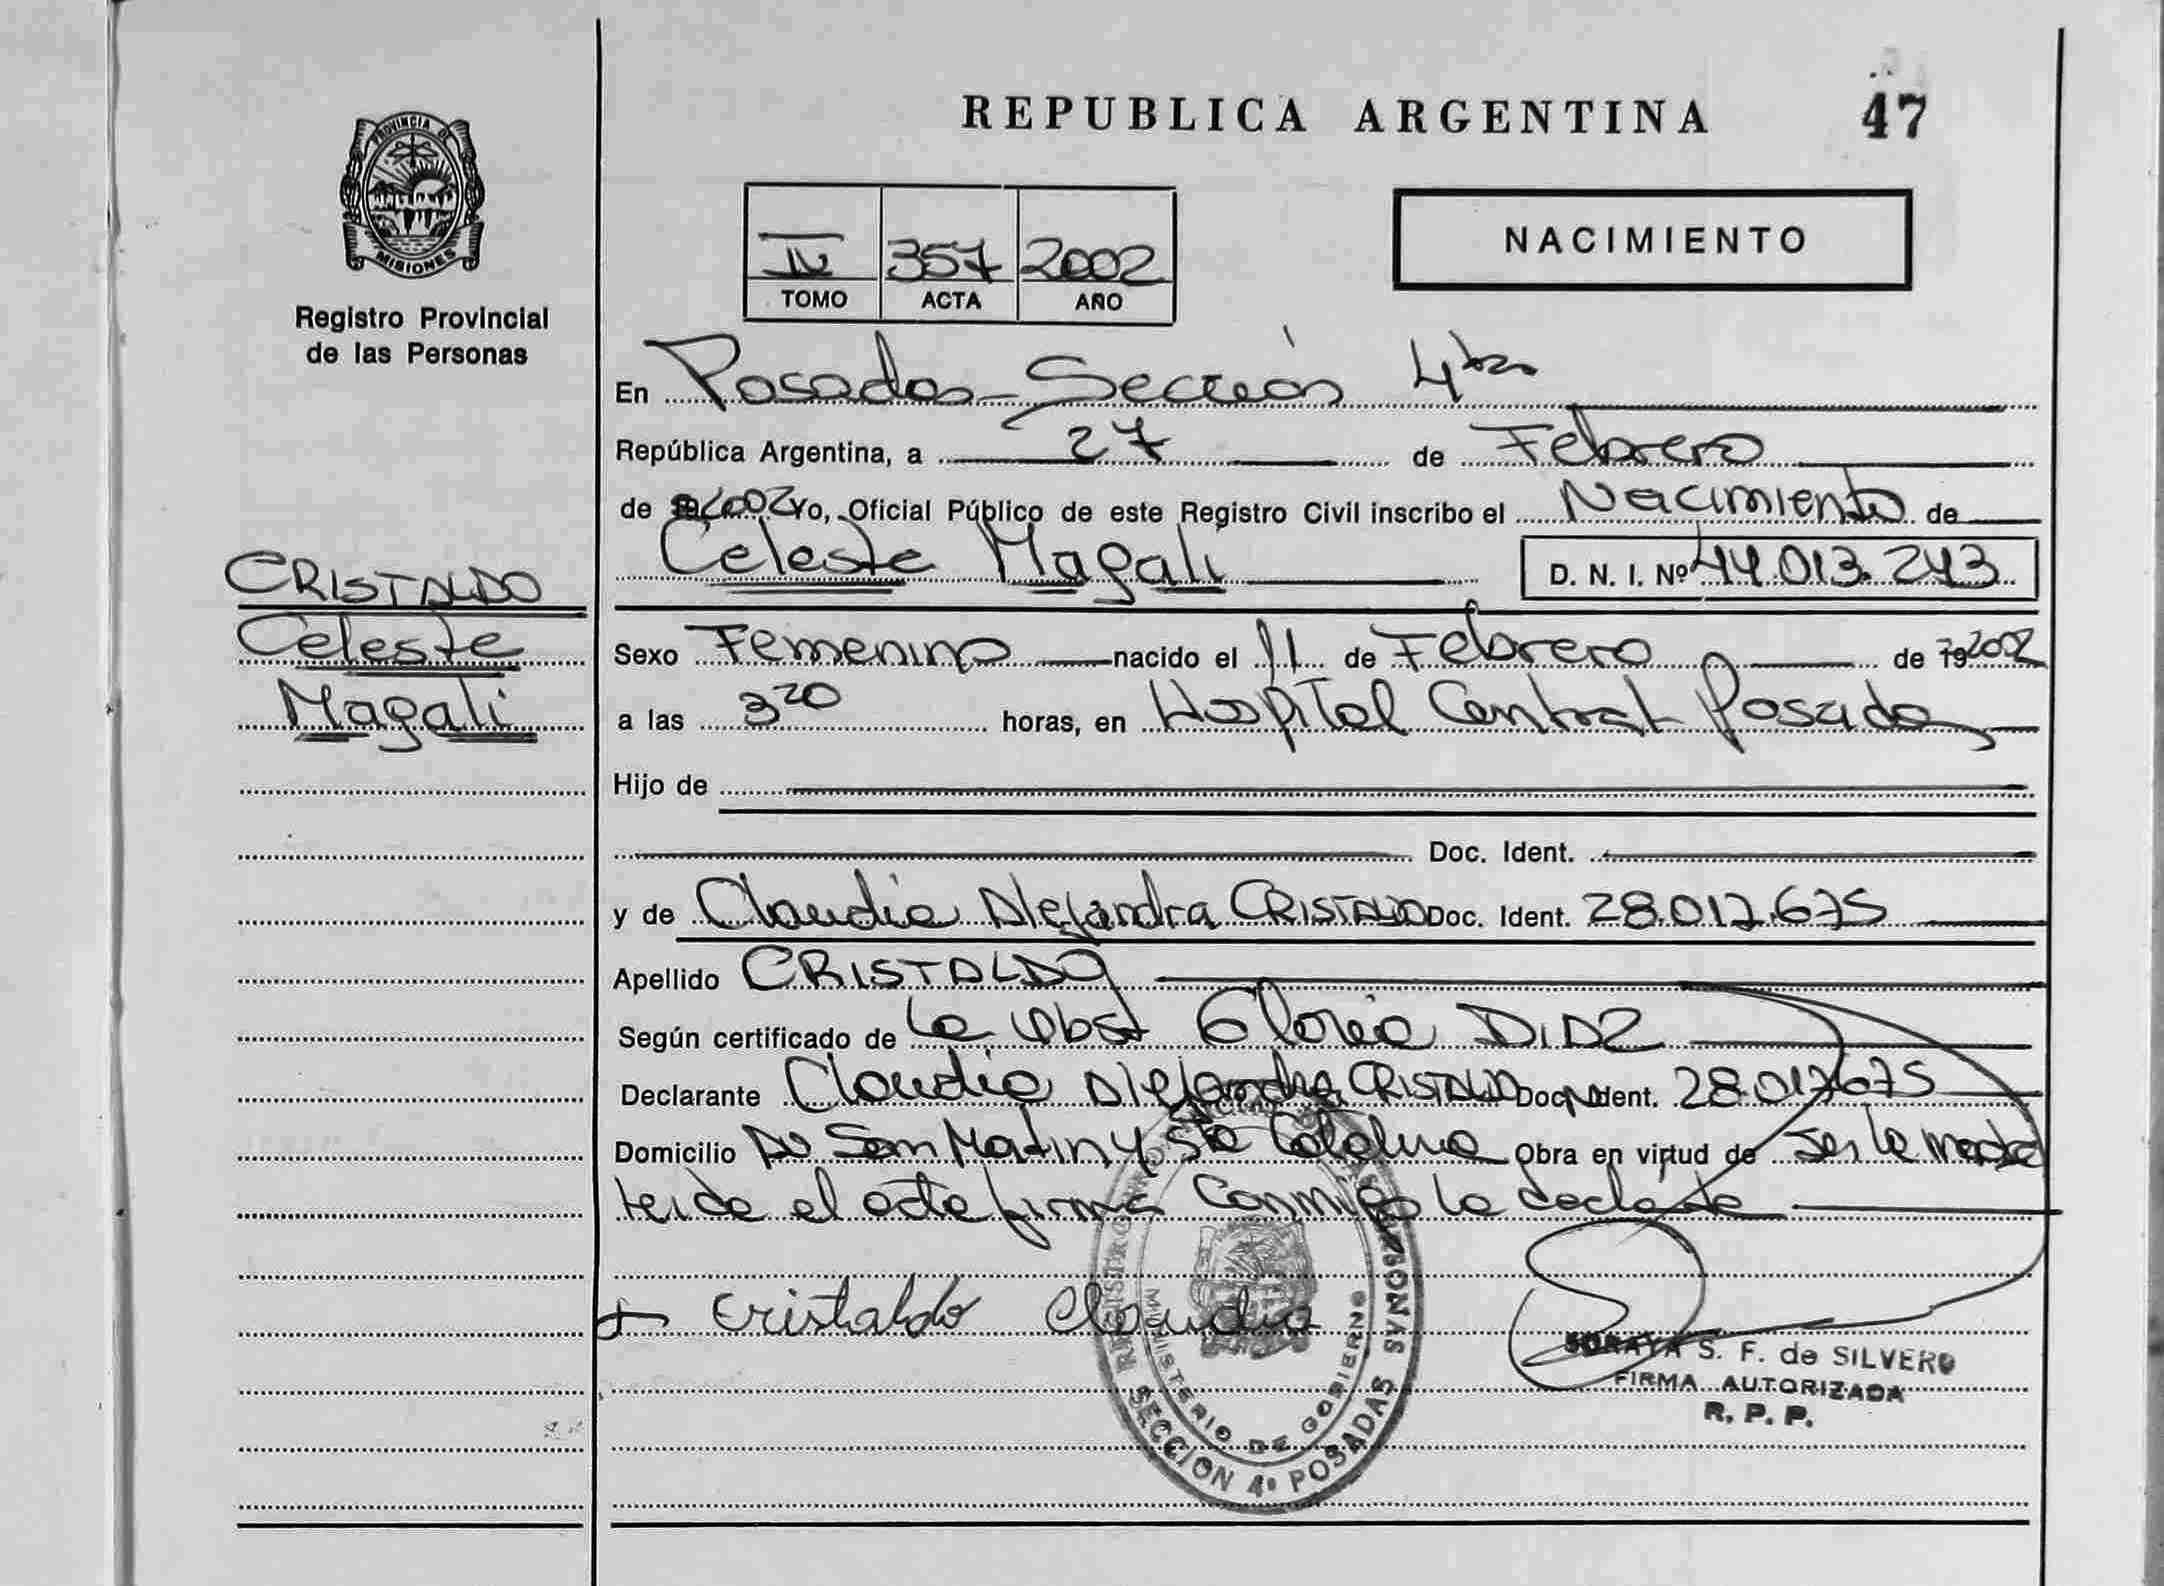 REPUBLICA ARGENTINA 47
PROVINCIA DE
MISIONES
Registro Provincial
de las Personas
IV 357 2002
TOMO ACTA AÑO
NACIMIENTO
En Posadas - Sección 4ta
República Argentina, a 27 de Febrero
de 2002 Yo, Oficial Público de este Registro Civil inscribo el Nacimiento de
Celeste Magali D. N. I. Nº 44.013.243
CRISTALDO
Celeste
Magali
Sexo Femenino nacido el 11 de Febrero de 19 2002
a las 3 20 horas, en Hospital Central Posadas
Hijo de
Doc. Ident.
y de Claudia Alejandra CRISTALDO Doc. Ident. 28.017.675
Apellido CRISTALDO
Según certificado de la Obst Gloria DIAZ
Declarante Claudia Alejandra CRISTALDO Doc. Ident. 28.017.675
Domicilio Av San Martin y Sta Catalina Obra en virtud de ser la madre
leida el acta firma conmigo la
Cristaldo Claudia
SORAYA S. F. de SILVERO
FIRMA AUTORIZADA
R. P. P.
MINISTERIO DE GOBIERNO
SECCION 4º POSADAS